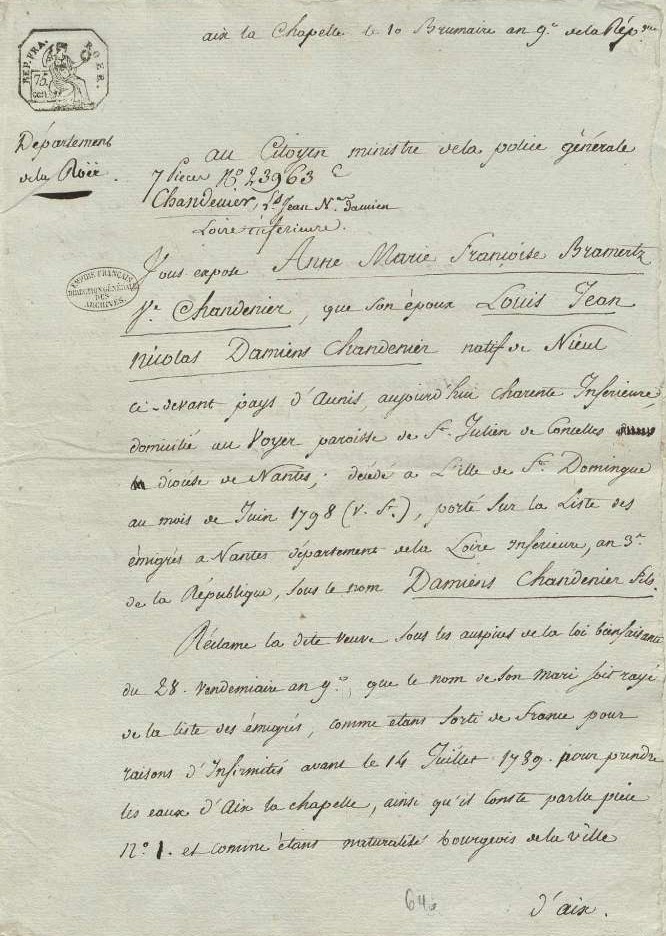 aix la Chapelle le 10 Brumaire an 9.e de la Rép.que
REP. FRA. ROER.
75 cen.
Département
de la Roër.
au Citoyen ministre de la police générale
7 pieces N.o 23963
Chandenier, Ls Jean N.as damien
Loire inferieure.
EMPIRE FRANÇAIS
DIRECTION GÉNÉRALE
DES
ARCHIVES.
Vous expose Anne Marie Françoise Bramertz
V.e Chandenier, que son époux Louis Jean
nicolas Damiens Chandenier natif de Nieul
ci-devant pays d'Aunis, aujourd'hui charente Inférieure,
domicilié au Voyer paroisse de St. Julien de Concelles
diocése de Nantes; décédé a L'ille de St. Domingue
au mois de Juin 1798 (v. St.), porté sur la Liste des
émigrés a Nantes département de la Loire Inférieure, an 3.e
de la République, sous le nom Damiens Chandenier fils.
Réclame la dite veuve sous les auspices de la loi bienfaisante
du 28. Vendemiaire an 9.e, que le nom de son mari soit rayé
de la liste des émigrés, comme etans sorti de France pour
raisons d'Infirmités avant le 14 Juillet 1789. pour prendre
les eaux d'Aix la chapelle, ainsi qu'il conste par la piéce
N.o 1. et comme étans naturalisé bourgeois de la ville
d'aix.